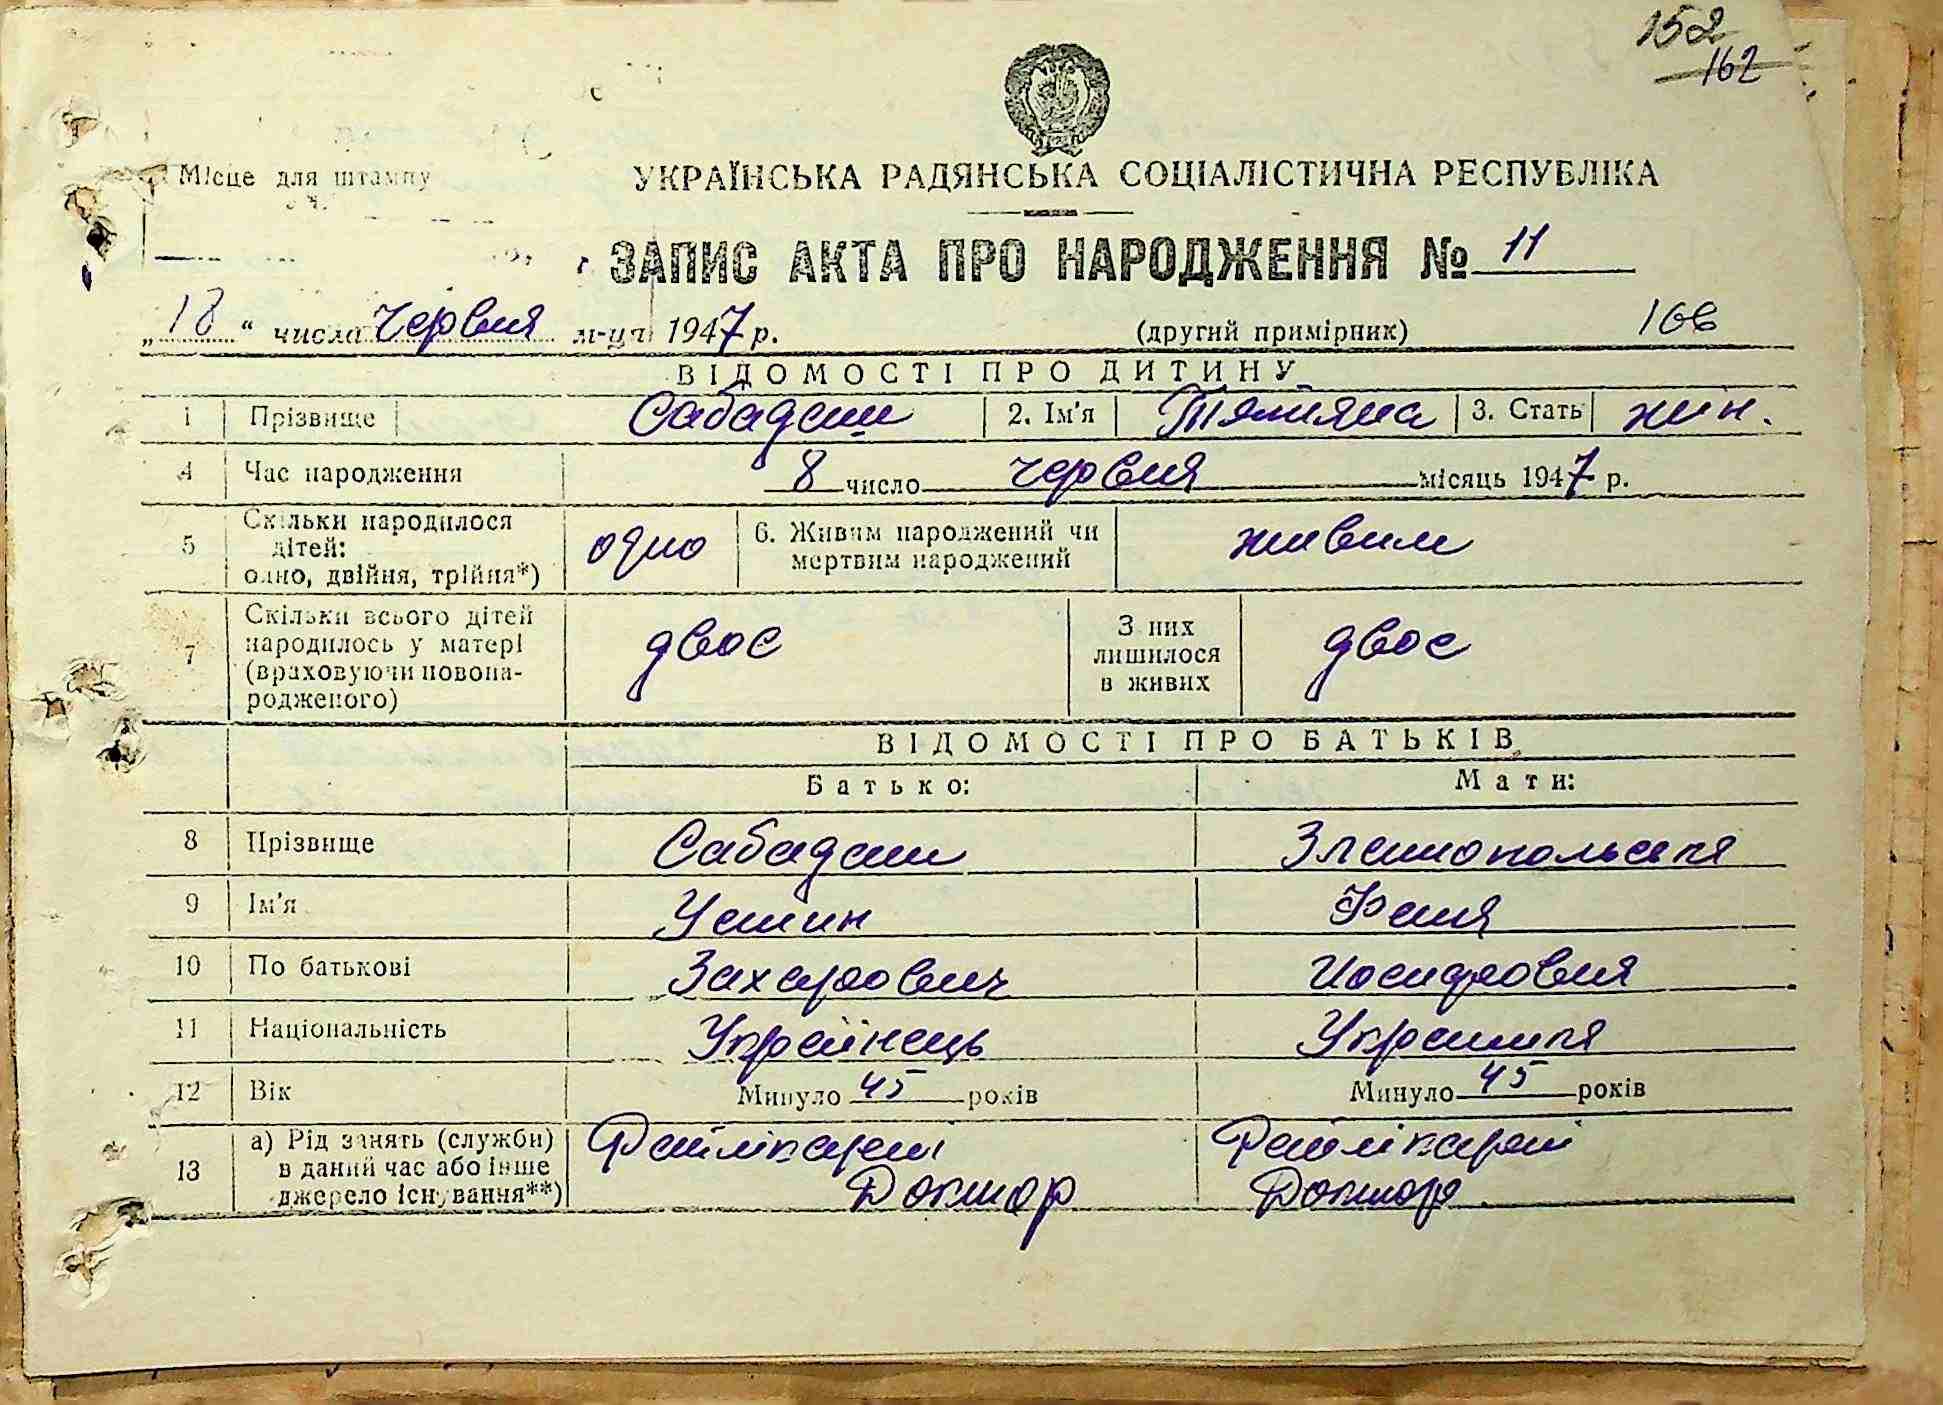 152
162
Місце для штампу
УКРАЇНСЬКА РАДЯНСЬКА СОЦІАЛІСТИЧНА РЕСПУБЛІКА
ЗАПИС АКТА ПРО НАРОДЖЕННЯ № 11
„18“ числа червня м-ця 1947 р. (другий примірник) 166
ВІДОМОСТІ ПРО ДИТИНУ
1 Прізвище Сабадаш 2. Ім'я Тятяна 3. Стать жін.
4 Час народження 8 число червня місяць 1947 р.
5 Скільки народилося дітей: одно, двійня, трійня*) одно 6. Живим народжений чи мертвим народжений живим
7 Скільки всього дітей народилось у матері (враховуючи новонародженого) двоє З них лишилося в живих двоє
ВІДОМОСТІ ПРО БАТЬКІВ
Батько: Мати:
8 Прізвище Сабадаш Златопольська
9 Ім'я Устин Фаня
10 По батькові Захарович Иосифовня
11 Національність Українець Українка
12 Вік Минуло 45 років Минуло 45 років
13 а) Рід занять (служби) в даний час або інше джерело існування**) Райлікарні Доктор Райлікарні Доктор